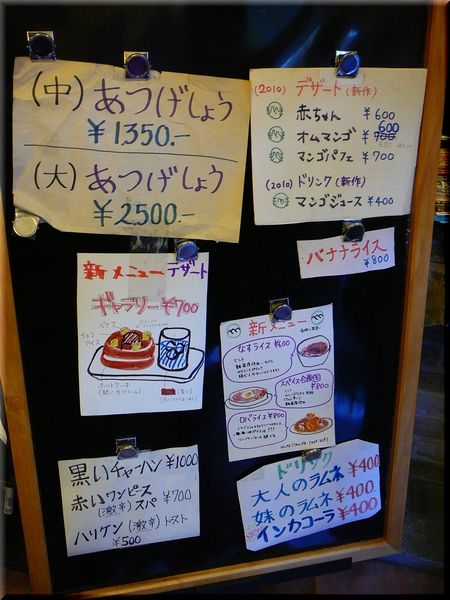 (中) あつげしょう
¥1,350.-
(大) あつげしょう
¥2500.-
(2010) デザート (新作)
赤ちゃん ¥600
オムマンゴ ¥700 600
マンゴパフェ ¥700
(2010) ドリンク (新作)
マンゴジュース ¥400
バナナライス
¥800
新メニュー デザート
ギャラリー ¥700
バナナ
アイス
ホットケーキ
新メニュー
なすライス ¥600
スパイス合衆国
¥800
ロバライス ¥800
黒いチャーハン ¥1000
赤いワンピース
(激辛) スパ ¥700
ハリケン (激辛) トースト
¥500
ドリンク
大人のラムネ ¥400
妹のラムネ ¥400
インカコーラ ¥400